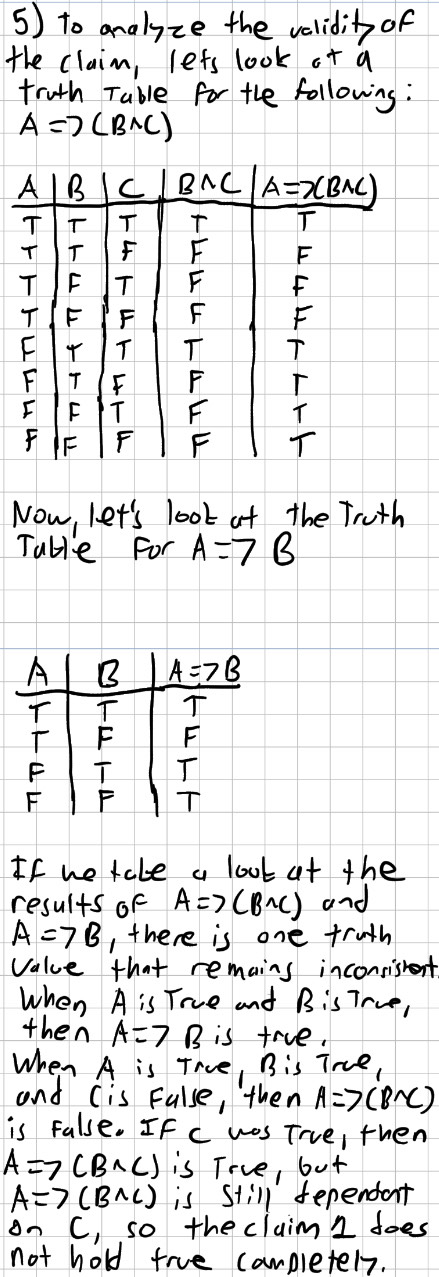 5) To analyze the validity of
the claim, lets look at a
truth Table for the following:
A => (B∧C)
A | B | C | B∧C | A=>(B∧C)
T | T | T | T | T
T | T | F | F | F
T | F | T | F | F
T | F | F | F | F
F | T | T | T | T
F | T | F | F | T
F | F | T | F | T
F | F | F | F | T
Now, let's look at the Truth
Table For A=> B
A | B | A=>B
T | T | T
T | F | F
F | T | T
F | F | T
If we take a look at the
results of A=>(B∧C) and
A=>B, there is one truth
Value that remains inconsistent.
When A is True and B is True,
then A=> B is true.
When A is True, B is True,
and C is False, then A=>(B∧C)
is False. IF C was True, then
A=>(B∧C) is True, but
A=>(B∧C) is Still dependent
on C, so the claim 1 does
not hold true completely.